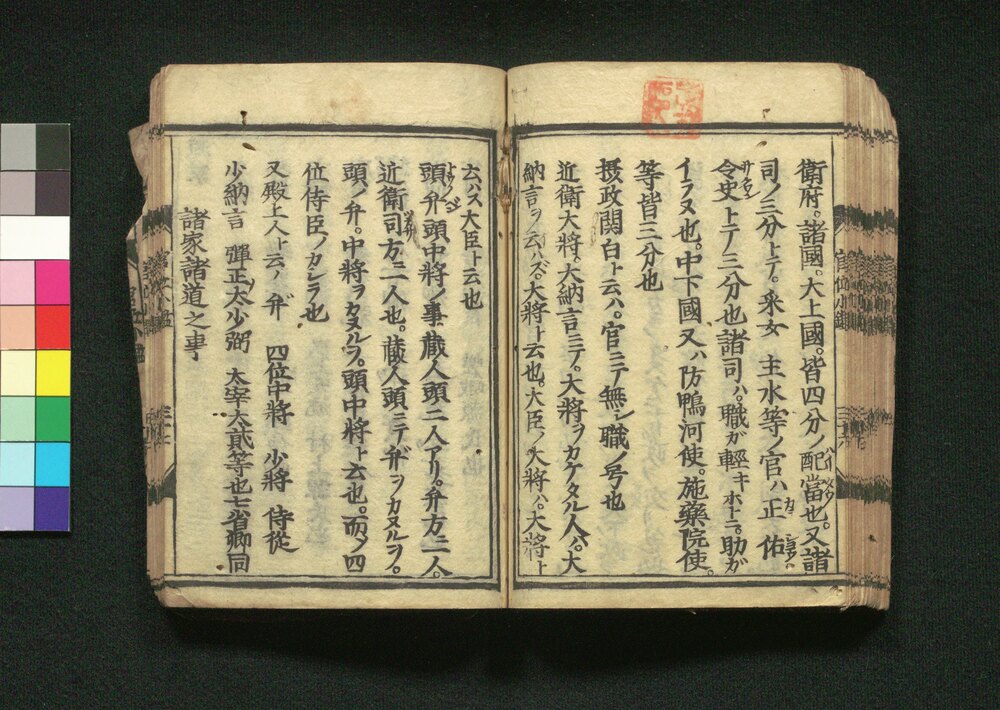 衛府。諸國。大上國。皆四分ノ配當也。又諸
司ノ三分トテ。釆女 主水等ノ官ハ 正 佑
令史トテ三分也諸司ハ。職ガ輕キホトニ。助ガ
イラヌ也。中下國又ハ防鴨河使。施藥院使。
等皆三分也
摂政関白ト云ハ。官ニテ無職ノ号也
近衛大將。大納言ニテ。大將ヲカケタル人ハ。大
納言ヲ云ハズ。大將ト云也。大臣ノ大將ハ。大將ト
云ハズ大臣ト云也
頭ノ弁頭中將ノ事 蔵人頭二人アリ。弁方二人。
近衛司方二人也。蔵人頭ニテ弁ヲカヌルヲ。
頭ノ弁。中將ヲカヌルヲ。頭中將ト云也。而メ四
位侍臣ノカシラ也
又殿上人ト云ノ 弁 四位中將 少將 侍從
少納言 彈正大少弼 太宰大貳等也七省卿同
諸家諸道之事